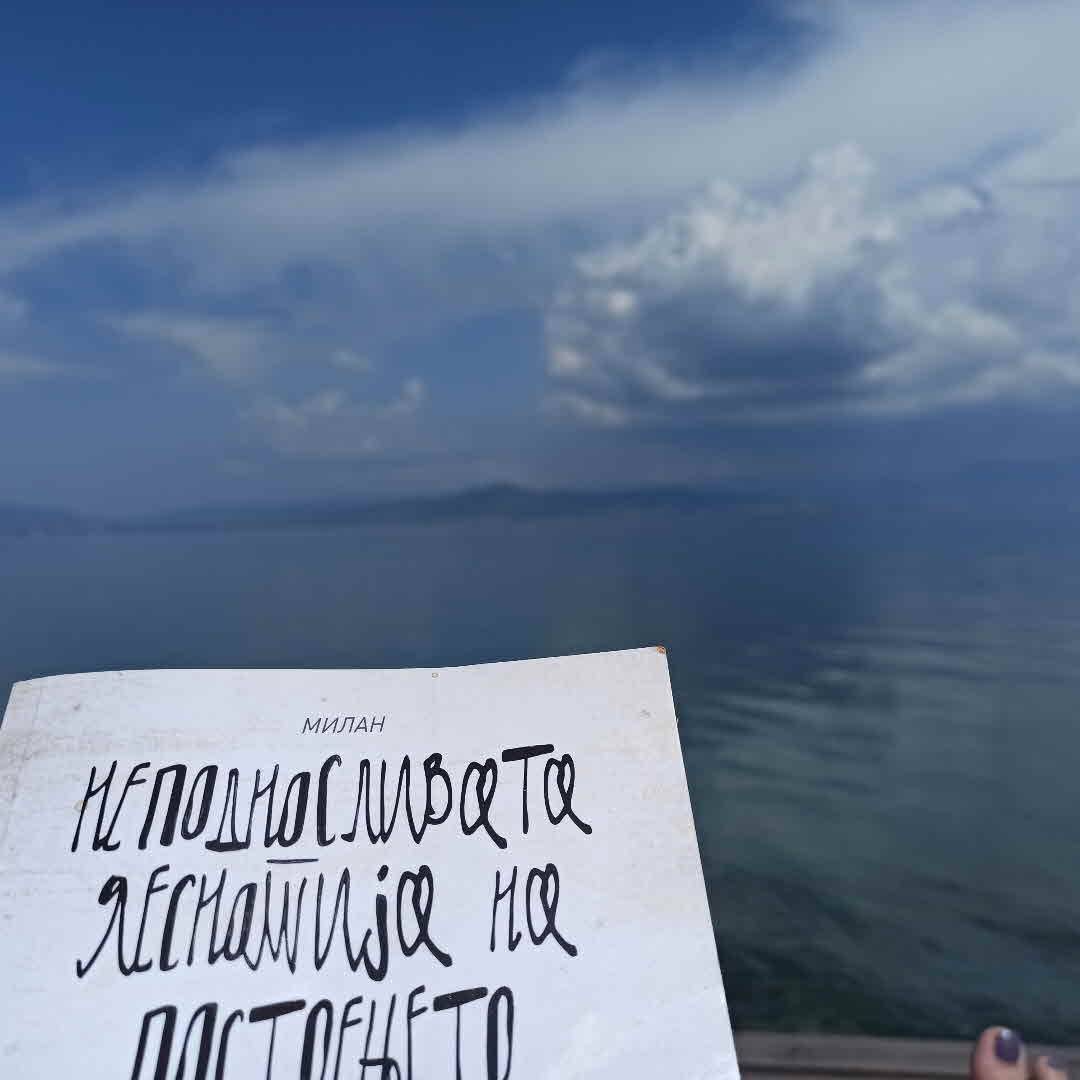 МИЛАН
НЕПОДНОСЛИВАТА
ЛЕСНОТИЈА НА
ПОСТОЕЊЕТО